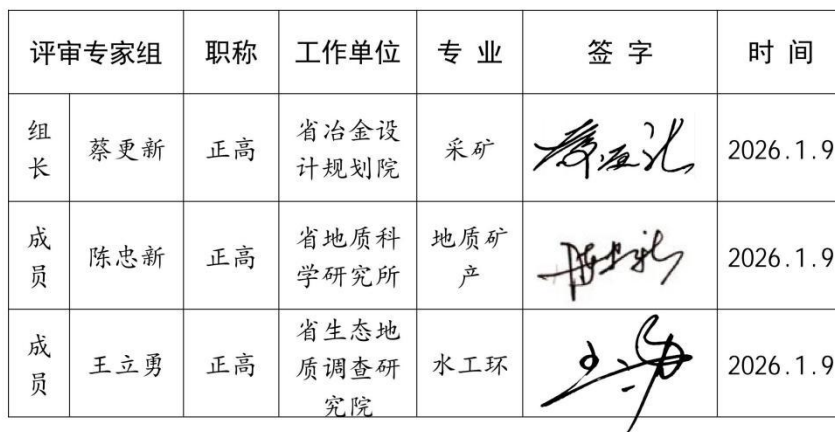 评审专家组 职称 工作单位 专业 签字 时间
组长 蔡更新 正高 省冶金设计规划院 采矿 蔡更新 2026.1.9
成员 陈忠新 正高 省地质科学研究所 地质矿产 陈忠新 2026.1.9
成员 王立勇 正高 省生态地质调查研究院 水工环 王立勇 2026.1.9